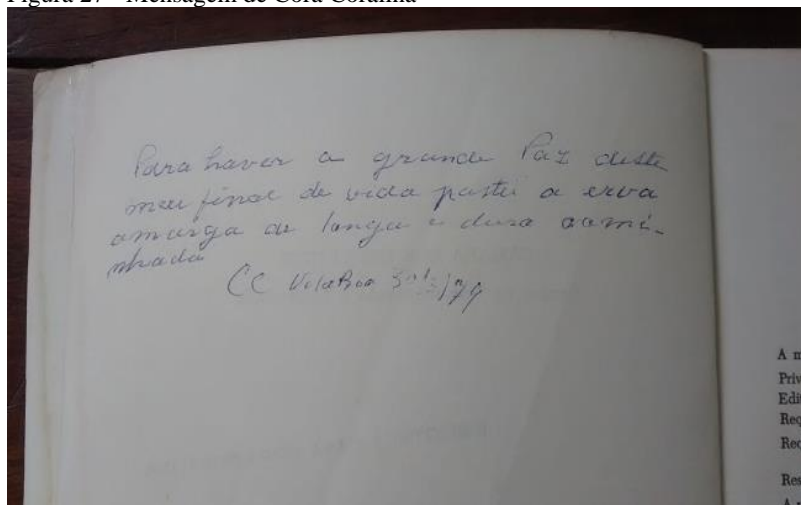 Figura 27 - Mensagem de Cora Coralina
Para haver a grande Paz deste
meu final de vida pastei a erva
amarga da longa e dura cami-
nhada
CC Vila Boa
A m
Priv
Edi
Req
Rec
Res